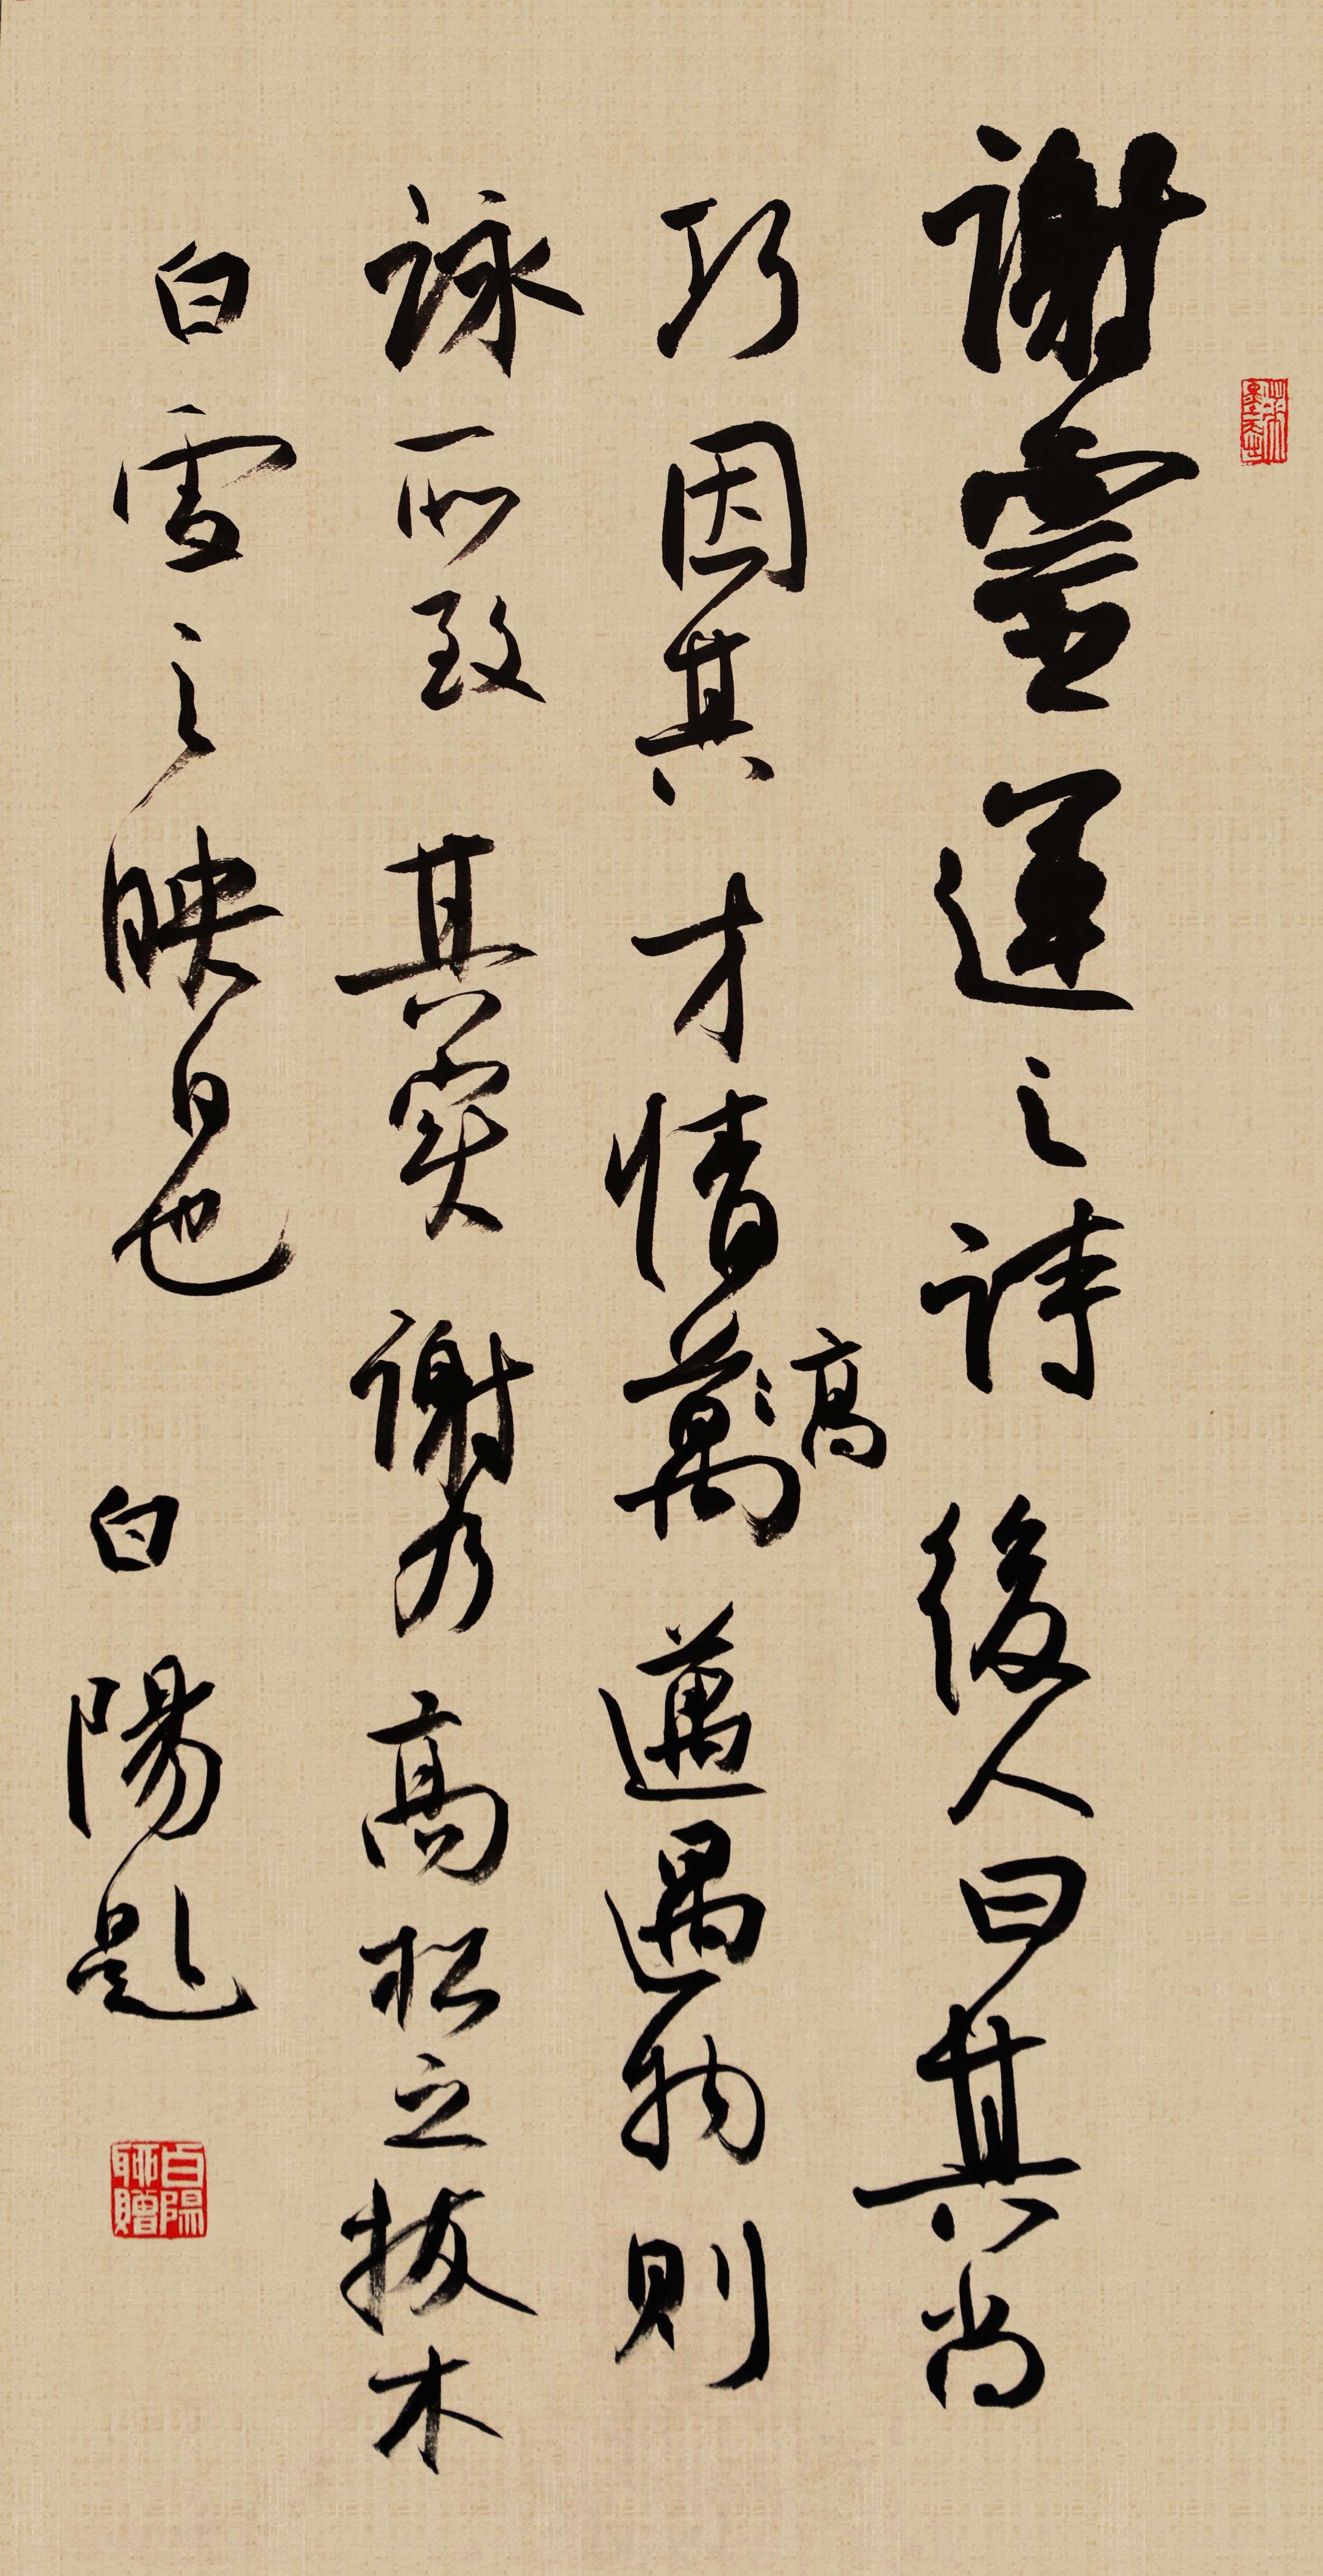 謝靈運之詩後人曰其尚
巧因其才情萬高邁遇物則
詠所致其實謝乃高松之拔木
白雪之映日也
白陽題
白陽
聊贈